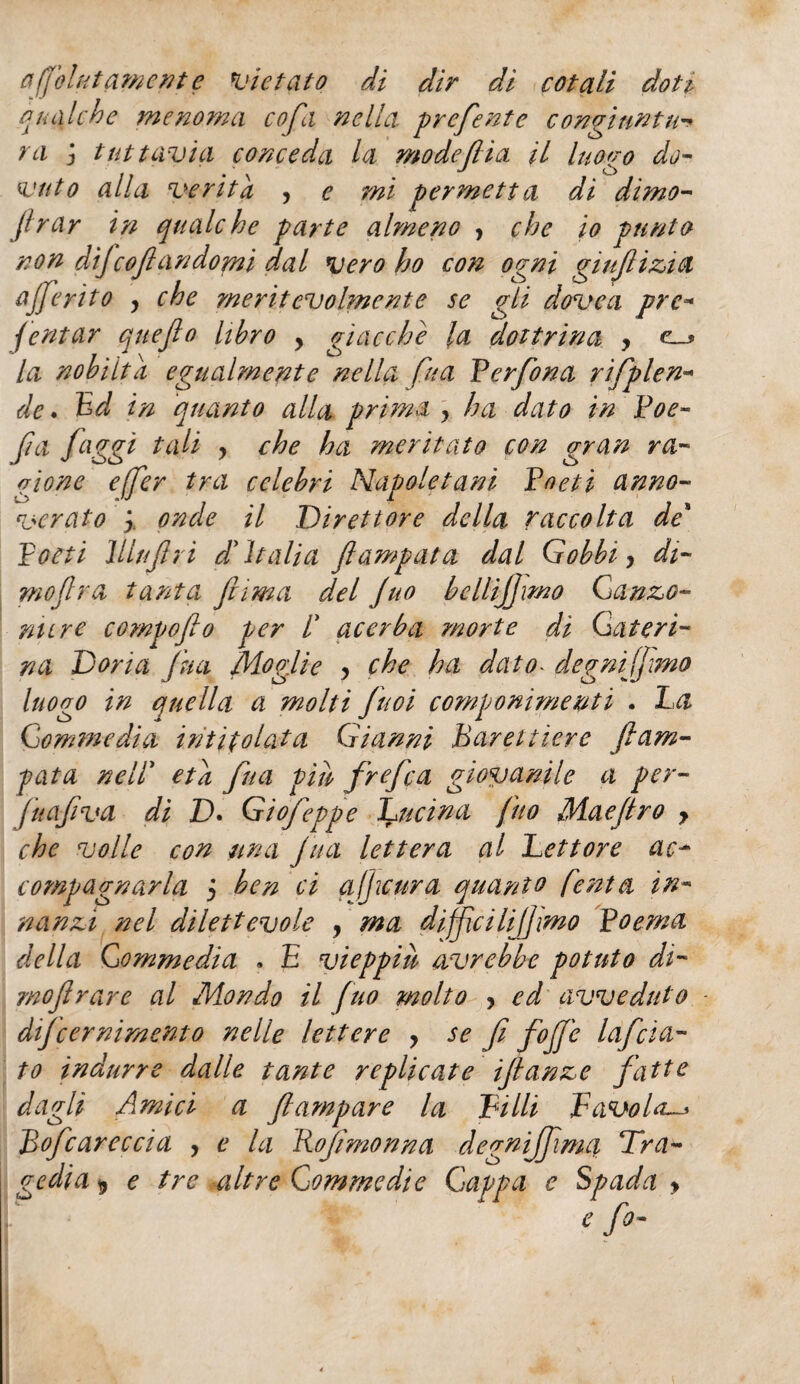 aſſolutamente vietato di dir di cotali doti
qualche menoma coſa nella preſente congiuntu-
ra ; tuttavia conceda la modeſtia il luogo do-
vuto alla verità , e mi permetta di dimo-
ſtrar in qualche parte almeno , che io punto
non diſcoſtandomi dal vero ho con ogni giuſtizia
aſſerito , che meritevolmente se gli dovea pre-
ſentar queſto libro , giacchè la dottrina , e
la nobiltà egualmente nella ſua Perſona riſplen-
de. Ed in quanto alla prima , ha dato in Poe-
ſia ſaggi tali , che ha meritato con gran ra-
gione eſſer tra celebri Napoletani Poeti anno-
verato ; onde il Direttore della raccolta de'
Poeti Illuſtri d'Italia ſtampata dal Gobbi , di-
moſtra tanta ſtima del ſuo belliſſimo Canzo-
niere compoſto per l' acerba morte di Cateri-
na Doria ſua Moglie , che ha dato degniſſimo
luogo in quella a molti ſuoi componimenti . La
Commedia intitolata Gianni Barettiere ſtam-
pata nell' età ſua più freſca giovanile a per-
ſuaſiva di D. Gioſeppe Lucina ſuo Maeſtro ,
che volle con una ſua lettera al Lettore ac-
compagnarla ; ben ci aſſicura quanto ſenta in-
nanzi nel dilettevole , ma difficiliſſimo Poema
della Commedia . E vieppiù avrebbe potuto di-
moſtrare al Mondo il ſuo molto , ed avveduto
diſcernimento nelle lettere , se ſi foſſe laſcia-
to indurre dalle tante replicate iſtanze fatte
dagli Amici a ſtampare la Filli Favola
Boſcareccia , e la Roſimonna degniſſima Tra-
gedia , e tre altre Commedie Cappa e Spada ,
e ſo-